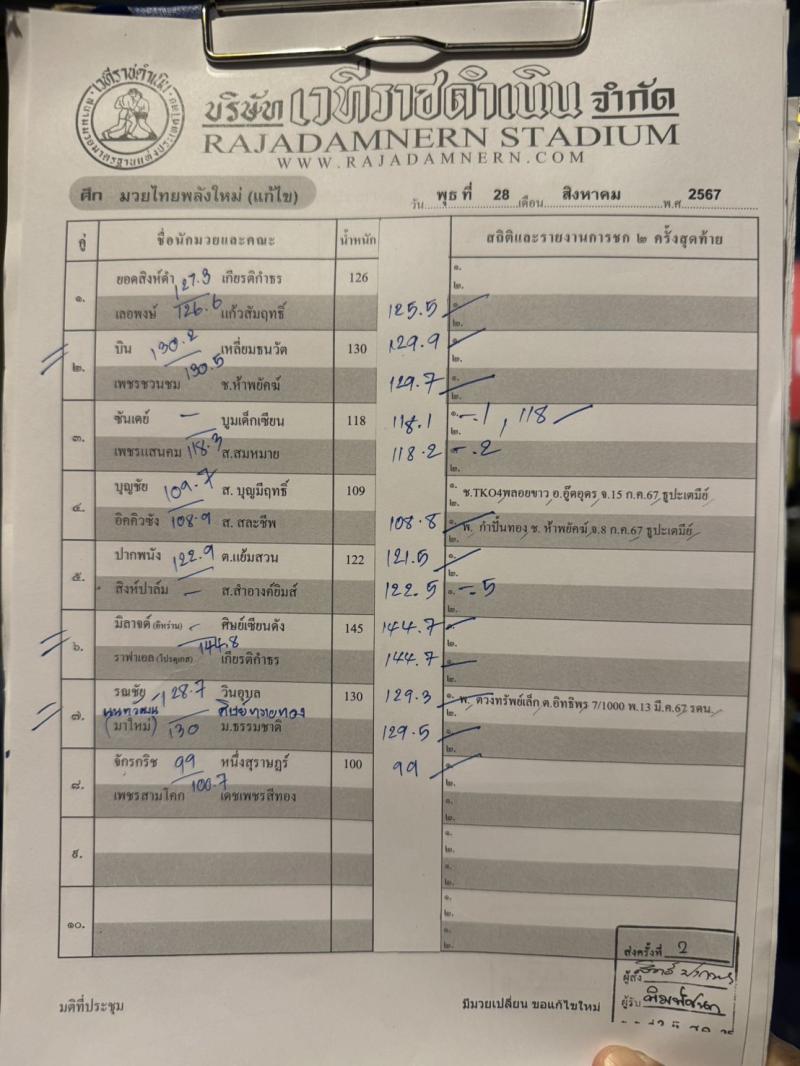 เวทีราชดำเนิน
บริษัท เวทีราชดำเนิน จำกัด
RAJADAMNERN STADIUM
WWW.RAJADAMNERN.COM
ศึก มวยไทยพลังใหม่ (แก้ไข) วัน พุธ ที่ 28 เดือน สิงหาคม พ.ศ. 2567
คู่ ชื่อนักมวยและคณะ น้ำหนัก สถิติและรายงานการชก ๒ ครั้งสุดท้าย
๑. ยอดสิงห์ดำ 127.3 เกียรติกำธร 126 ๑.
๒.
เลอพงษ์ 126.6 แก้วสัมฤทธิ์ 125.5 ๑.
๒.
๒. บิน 130.2 เหลี่ยมธนวัต 130 129.9 ๑.
๒.
เพชรชวนชม 130.5 ช.ห้าพยัคฆ์ 129.7 ๑.
๒.
๓. ซันเดย์ - บูมเด็กเซียน 118 118.1 ๑. -.1, 118
๒.
เพชรแสนคม 118.3 ส.สมหมาย 118.2 ๑. -.2
๒.
๔. บุญชัย 109.7 ส. บุญมีฤทธิ์ 109 ๑. ช.TKO4พลอยขาว อ.อู๊ดอุดร จ.15 ก.ค.67 ธูปะเตมีย์
๒.
อิคคิวซัง 108.9 ส. สละชีพ 108.8 ๑. พ. กำปั้นทอง ช. ห้าพยัคฆ์ จ.8 ก.ค.67 ธูปะเตมีย์
๒.
๕. ปากพนัง 122.9 ต.แย้มสวน 122 121.5 ๑.
๒.
สิงห์ปาล์ม - ส.สำอางค์ยิมส์ 122.5 ๑. -.5
๒.
๖. มิลาจต์ (อิหร่าน) - ศิษย์เซียนดัง 145 144.7 ๑.
๒.
ราฟาเอล (โปรตุเกส) 144.8 เกียรติกำธร 144.7 ๑.
๒.
๗. รณชัย 128.7 วินอุบล 130 129.3 ๑. พ. ดวงทรัพย์เล็ก ต.อิทธิพร 7/1000 พ.13 มี.ค.67 รดน.
๒.
ศิษย์ทรายทอง
(มาใหม่) 130 ม.ธรรมชาติ 129.5 ๑.
๒.
๘. จักรกริช 99 หนึ่งสุราษฎร์ 100 99 ๑.
๒.
เพชรสามโคก 100.7 เดชเพชรสีทอง ๑.
๒.
๙. ๑.
๒.
๑.
๒.
๑๐. ๑.
๒.
๑.
๒.
มติที่ประชุม มีมวยเปลี่ยน ขอแก้ไขใหม่
ส่งครั้งที่ 2
ผู้ส่ง
ผู้รับ